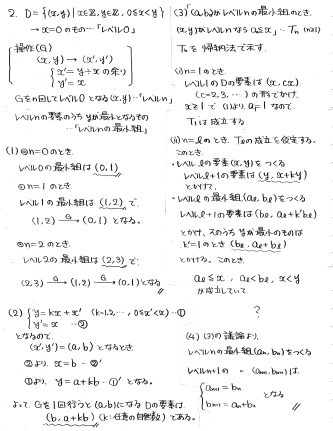 2. D={(x,y)|x∈ℤ, y∈ℤ, 0≤x<y}
→ x=0のもの…「レベル0」
操作(G)
(x,y) → (x',y')
{ x'=y÷xの余り
y'=x
Gをn回してレベル0となる(x,y)…「レベルn」
レベルnの要素のうちyが最小となるもの
…「レベルnの最小組」
(1) ⊚n=0のとき
レベル0の最小組は(0,1)
⊚n=1のとき
レベル1の最小組は(1,2)で
(1,2) →G (0,1)となる。
⊚n=2のとき
レベル2の最小組は(2,3)で
(2,3) →G (1,2) →G (0,1)となる
(2) { y=kx+x' (k=1,2,…, 0≤x'<x)…①
y'=x …②
となるので
(x',y')=(a,b)となるとき
②より x=b …②'
①より y=a+kb …①' となる。
よって Gを1回行うと(a,b)になるDの要素は
(b, a+kb) (k:任意の自然数)である。
(3) 「(a,b)がレベルnの最小組のとき、
(x,y)がレベルnならa≤x」…Tn (n≥1)
Tnを帰納法で示す。
(i) n=1のとき
レベル1のDの要素は(x, cx)
(c=2,3,…)の形でかけ、
x≥1で(1)より a₁=1なので
T₁は成立する。
(ii) n=ℓのとき Tℓの成立を仮定する。
このとき
・レベルℓの要素(x,y)をつくる
レベルℓ+1の要素は(y, x+ky)
とかけて、
・レベルℓの最小組(aℓ,bℓ)をつくる
レベルℓ+1の要素は(bℓ, aℓ+k'bℓ)
とかけ、そのうちyが最小のものは
k'=1のとき(bℓ, aℓ+bℓ)
とかける。このとき
aℓ≤x, aℓ<bℓ, x<y
が成立していて
?
(4) (3)の議論より、
レベルnの最小組(an,bn)をつくる
レベルn+1の 〃 (an+1,bn+1)は
{ an+1=bn
bn+1=an+bn となる